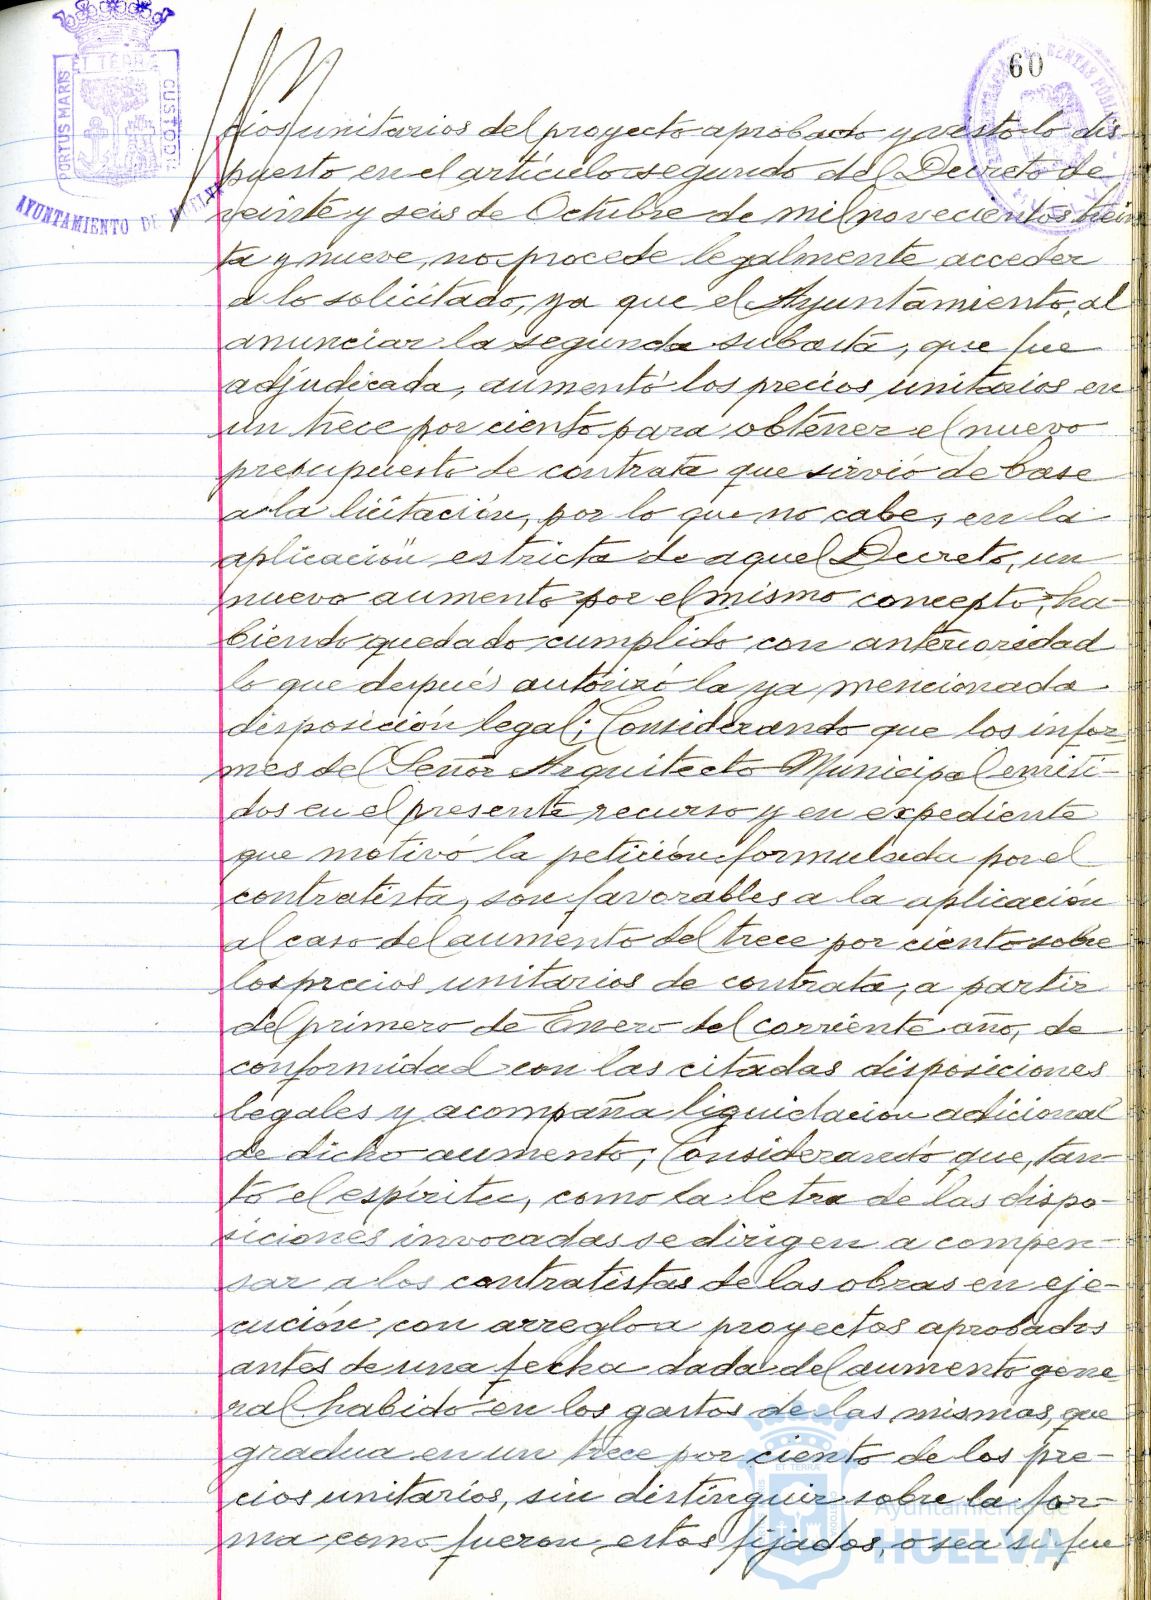 60
PORTUS MARIS
ET TERRÆ
CUSTODIA
AYUNTAMIENTO DE HUELVA
cios unitarios del proyecto aprobado y visto lo dis-
puesto en el artículo segundo del Decreto de
veinte y seis de Octubre de mil novecientos trein
ta y nueve, no procede legalmente acceder
a lo solicitado, ya que el Ayuntamiento, al
anunciar la segunda subasta, que fue
adjudicada, aumentó los precios unitarios en
un trece por ciento para obtener el nuevo
presupuesto de contrata que sirvió de base
a la licitación, por lo que no cabe, en la
aplicación estricta de aquel Decreto, un
nuevo aumento por el mismo concepto, ha-
biendo quedado cumplido con anterioridad
lo que después autorizó la ya mencionada
disposición legal; Considerando que los infor-
mes del Señor Arquitecto Municipal emiti-
dos en el presente recurso y en expediente
que motivó la petición formulada por el
contratista, son favorables a la aplicación
al caso del aumento del trece por ciento sobre
los precios unitarios de contrata, a partir
del primero de Enero del corriente año, de
conformidad con las citadas disposiciones
legales y acompaña liquidacion adicional
de dicho aumento; Considerando que, tan-
to el espíritu, como la letra de las dispo-
siciones invocadas se dirigen a compen-
sar a los contratistas de las obras en eje-
cución con arreglo a proyectos aprobados
antes de una fecha dada del aumento gene-
ral habido en los gastos de las mismas, que
gradua en un trece por ciento de los pre-
cios unitarios, sin distinguir sobre la for-
ma como fueron estos fijados, o sea si fue
Ayuntamiento de
HUELVA